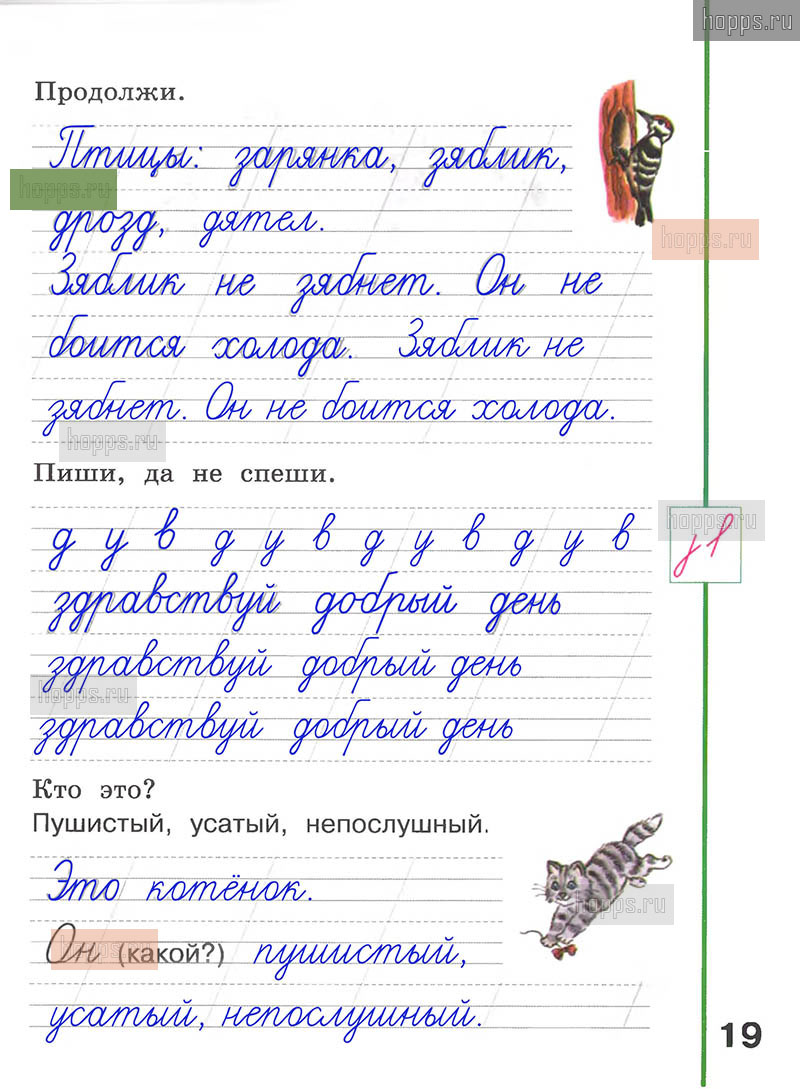 hopps.ru
Продолжи.
Птицы: зарянка, зяблик,
hopps.ru
дрозд, дятел.
hopps.ru
Зяблик не зябнет. Он не
боится холода. Зяблик не
зябнет. Он не боится холода.
hopps.ru
Пиши, да не спеши.
hopps.ru
д у в д у в д у в д у в
здравствуй добрый день
здравствуй добрый день
hopps.ru
здравствуй добрый день
Кто это?
Пушистый, усатый, непослушный.
Это котёнок.
hopps.ru
Он (какой?) пушистый,
hopps.ru
усатый, непослушный.
19